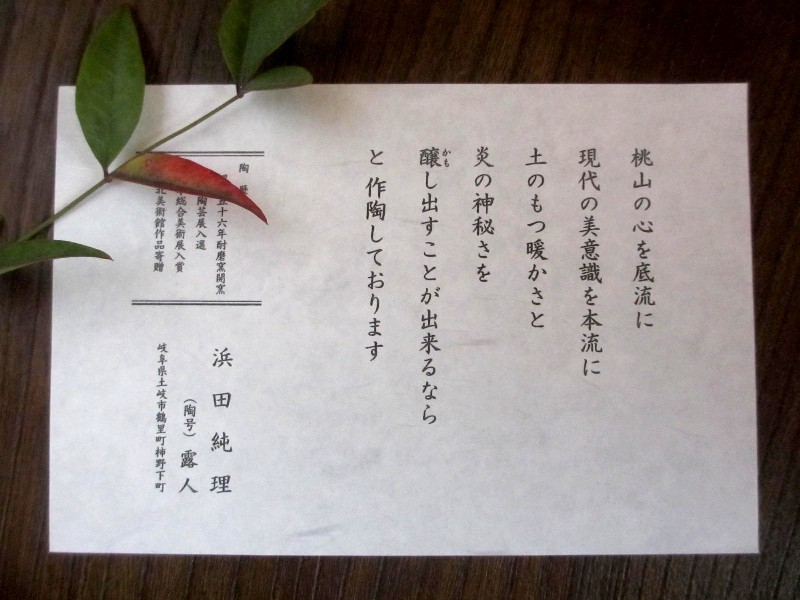 桃山の心を底流に
現代の美意識を本流に
土のもつ暖かさと
炎の神秘さを
醸し出すことが出来るなら
かも
と作陶しております
陶
五十六年耐磨窯開窯
陶芸展入選
総合美術展入賞
北美術館作品寄贈
浜田純理
（陶号）露人
岐阜県土岐市鶴里町柿野下町